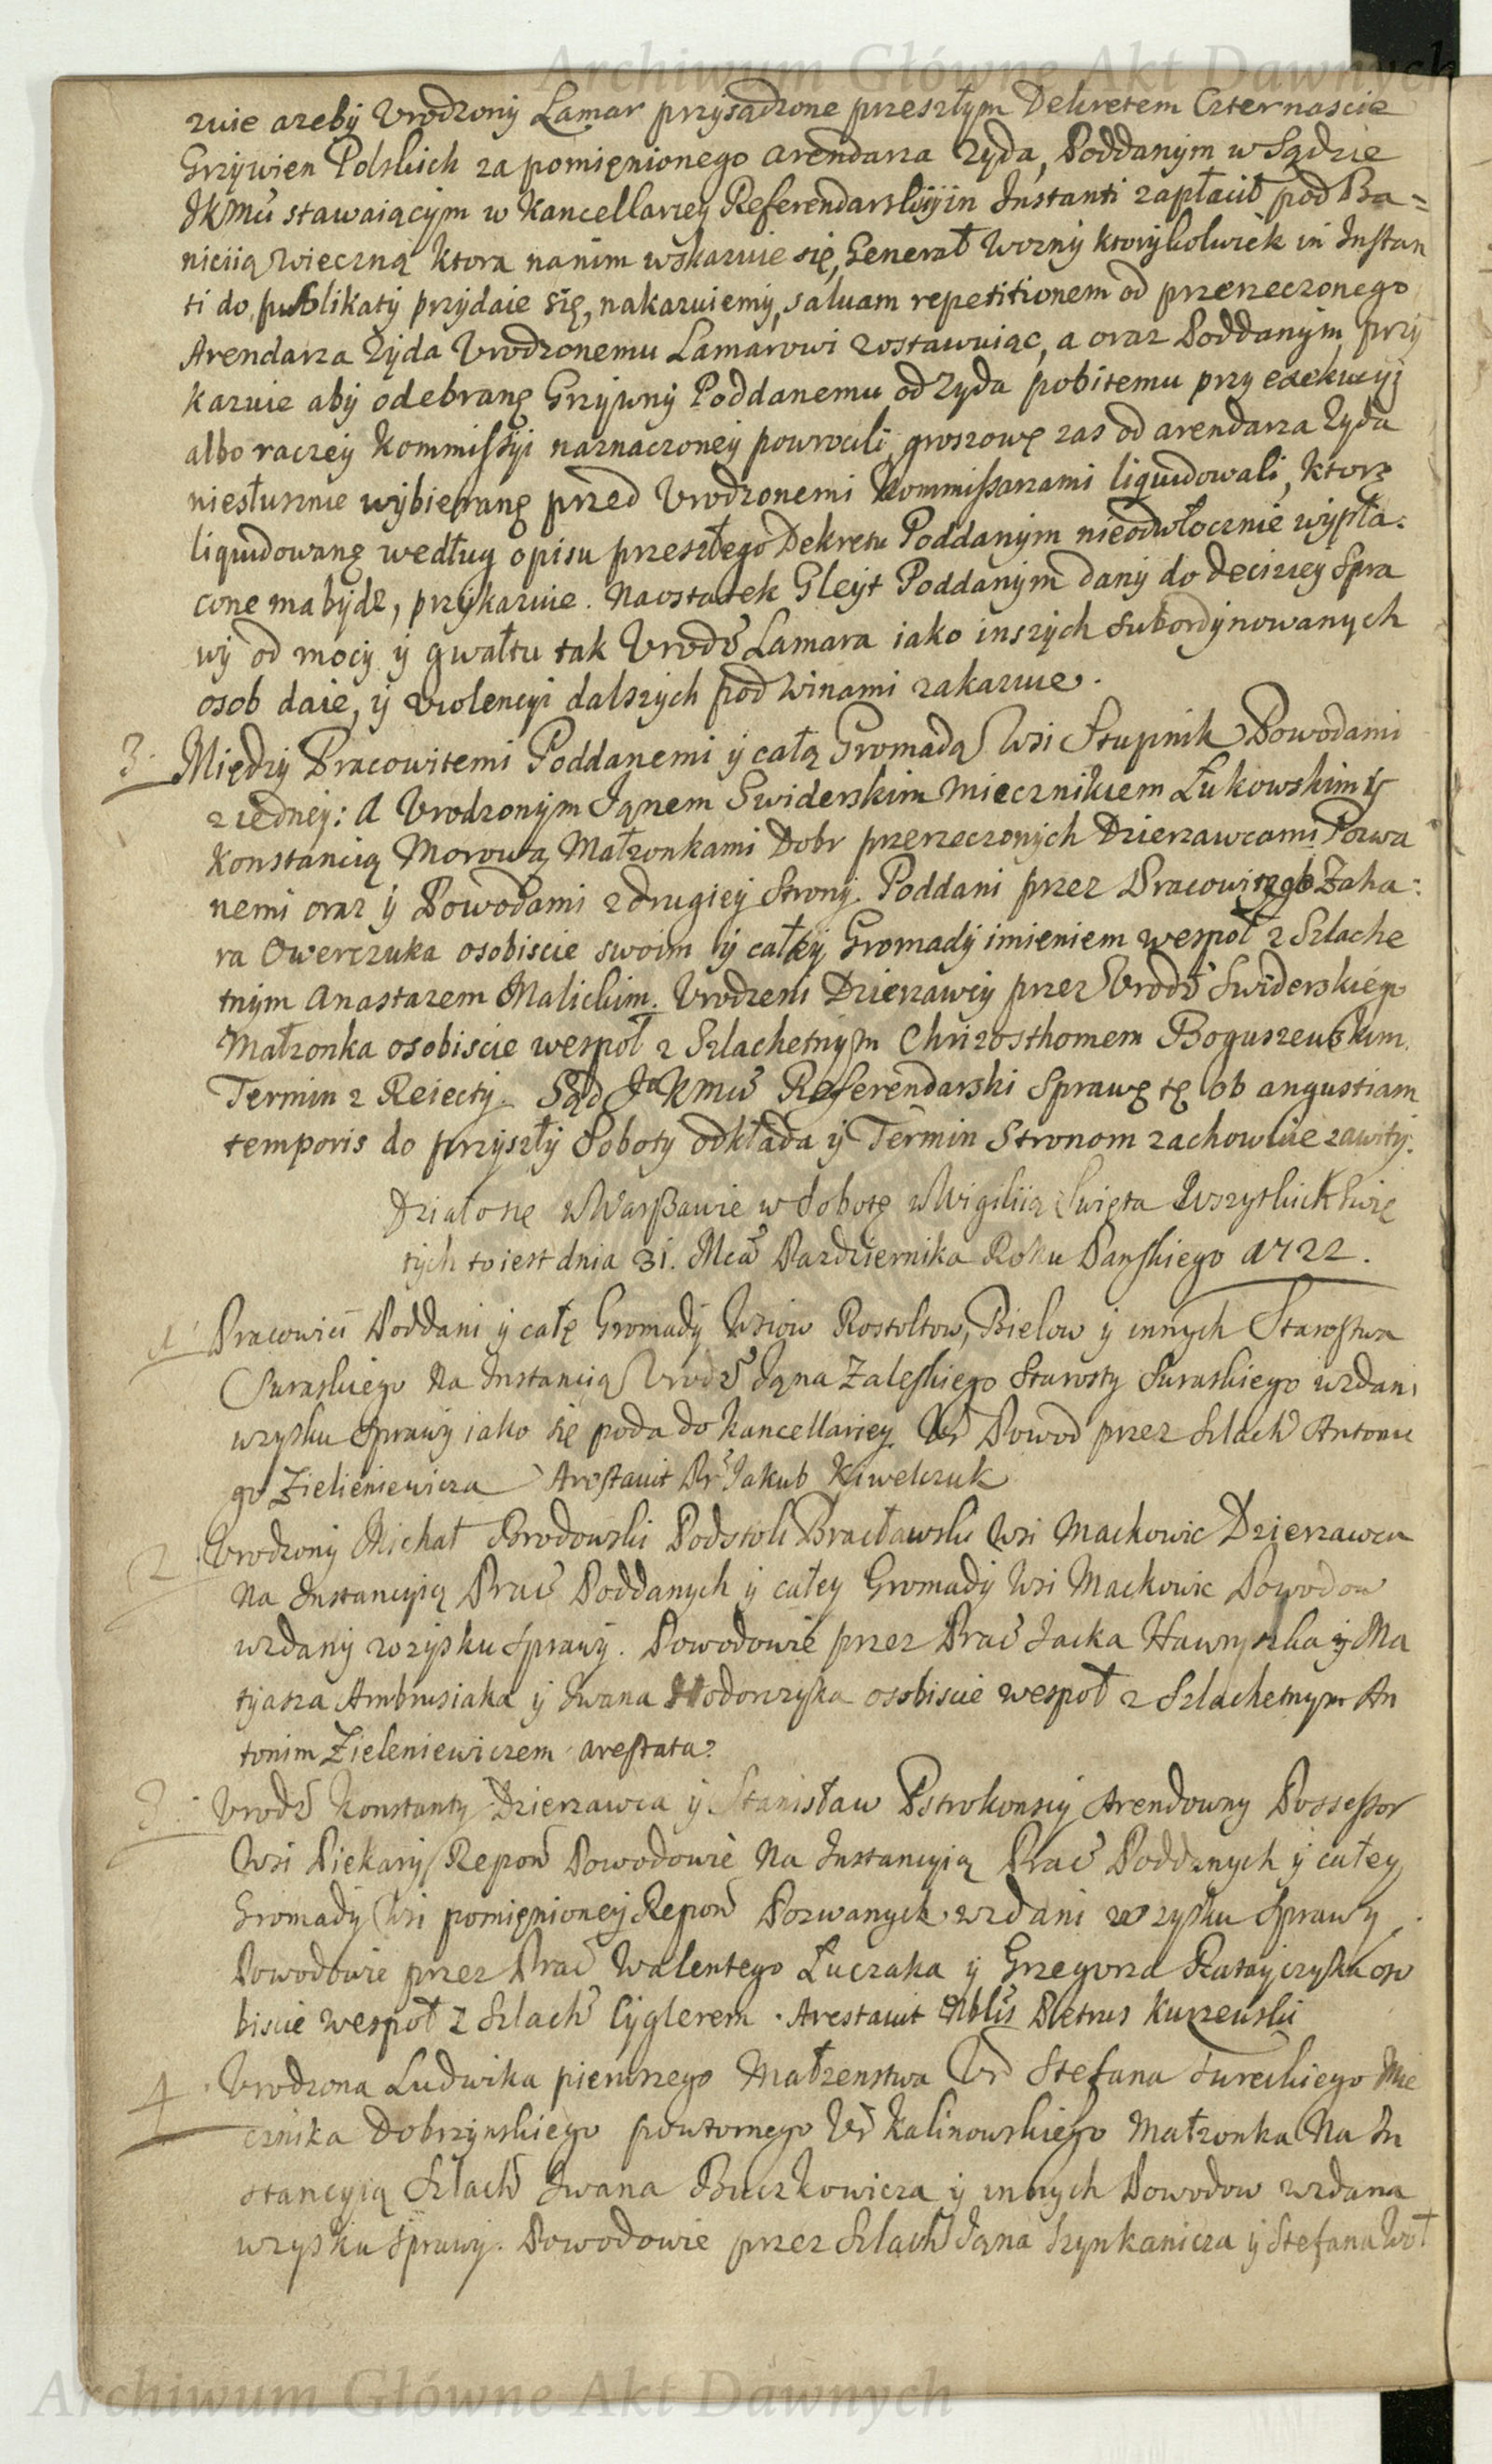 Archiwum Główne Akt Dawnych
zuie azeby Vrodzony Lamar przysądzone przeszłym Dekretem Czternascie
Grzywien Polskich za pomięnionego arendarza Zyda, Poddanym w Sądzie
JKMci stawaiącym w Kancellaryey Referendarskiy in Instanti zapłacił pod Ba=
niciią wieczną ktora nanim wskazuie się, Generał Wozny ktorykolwiek in Instan
ti do publikaty przydaie się, nakazuiemy, saluam repetitionem od przerzeczonego
Arendarza Zyda Vrodzonemu Lamarowi zostawuiąc, a oraz Poddanym przy
kazuie aby odebranę Grzywny Poddanemu od Zyda pobitemu przy exekucyi
albo raczey Kommissyi naznaczoney powrocili, groszowę zas od arendarza Zyda
niesłusznie wybieranę przed Vrodzonemi Kommissarzami liquidowali, ktorę
liquidowanę według opisu przeszłego Dekretu Poddanym nieodwłocznie wypła:
cone ma bydz, przykazuie. Naostatek Gleyt Poddanym dany do deciziey Spra
wy od mocy y gwałtu tak Vrodo Lamara iako inszych subordynowanych
osob daie, y violencyi dalszych pod winami zakazuie.
3. Między Pracowitemi Poddanemi y całą Gromadą Wsi Stupnik Powodami
z iedney: A Vrodzonym Janem Swiderskim Miecznikiem Łukowskim y
Konstancią Morową Małzonkami Dobr przerzeczonych Dzierzawcami Pozwa
nemi oraz y Powodami z drugiey Strony. Poddani przez Pracowitego Zaha:
ra Owerczuka osobiscie swoim y całey Gromady imieniem wespoł z Szlache
tnym Anastazem Malickim. Vrodzeni Dzierzawcy przez Vrodo Swiderskiego
Małzonka osobiscie wespoł z Szlachetnym Chrizosthomem Boguszewskim.
Termin z Reiecty. Sąd JKMci Referendarski Sprawę tę ob angustiam
temporis do przyszły Soboty odkłada y Termin Stronom zachowuie zawity.
Działo się w Warszawie w Sobotę w Wigiliią Swięta Wszystkich Swię
tych to iest dnia 31. Mca Pazdziernika Roku Panskiego 1722.
1. Pracowici Poddani y całę Gromady Wsiow Rostoltow, Bielow y innych Starostwa
Suraskiego Na Instancią Vrodo Jana Zaleskiego Starosty Suraskiego wzdani
wzysku Sprawy iako się poda do Kancellariey. Vr Powod przez Szlach Antonie
go Zielieniewicza Arestauit Pr Jakub Kiwelczuk
2. Vrodzony Michał Brodowski Podstoli Bracławski Wsi Mackowic Dzierzawca
Na Instancyią Prac Poddanych y całey Gromady Wsi Mackowic Powodow
wzdany wzysku Sprawy. Powodowie przez Prac Jacka Hawryszka y Ma
tyasza Ambrusiaka y Iwana Hodorczyka osobiscie wespoł z Szlachetnym An
tonim Zieleniewiczem arestata
3. Vrodo Konstanty Dzierzawca y Stanisław Pstrokonscy Arendowny Possessor
Wsi Piekary Repon Powodowie Na Instancyią Prac Poddanych y całey
Gromady Wsi pomięnioney Repon Pozwanych wzdani w zysku Sprawy.
Powodowie przez Prac Walentego Łuczaka y Grzegorza Ratayczyka oso
biscie wespoł z Szlach Cyglerem. Arestauit Nblis Petrus Kurzewski
4. Vrodzona Ludwika pierwszego Małzenstwa Vr Stefana Tureckiego Mie
cznika Dobrzynskiego powtornego Vr Kalinowskiego Małzonka Na In
stancyią Szlach Iwana Buczkowicza y innych Powodow wzdana
wzysku Sprawy. Powodowie przez Szlach Jana Szynkanicza y Stefana Woł
Archiwum Główne Akt Dawnych